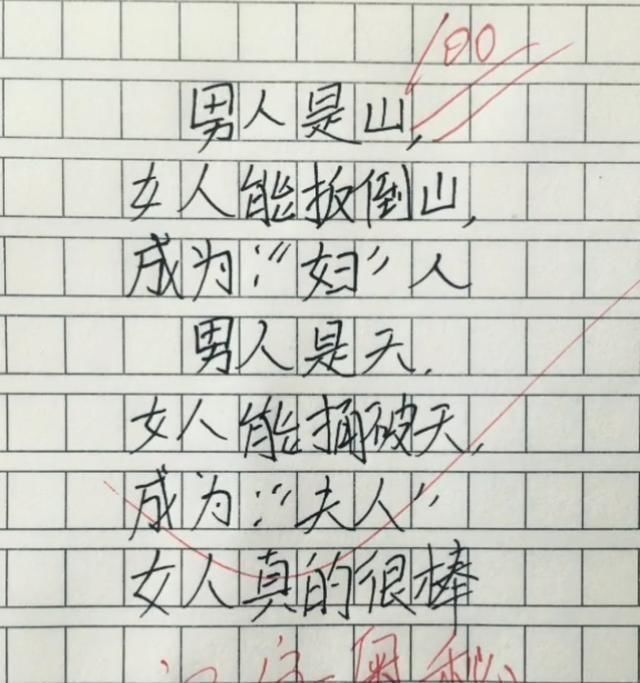 100
男人是山,
女人能扳倒山,
成为:“妇”人
男人是天.
女人能捅破天,
成为:“夫人”
女人真的很棒